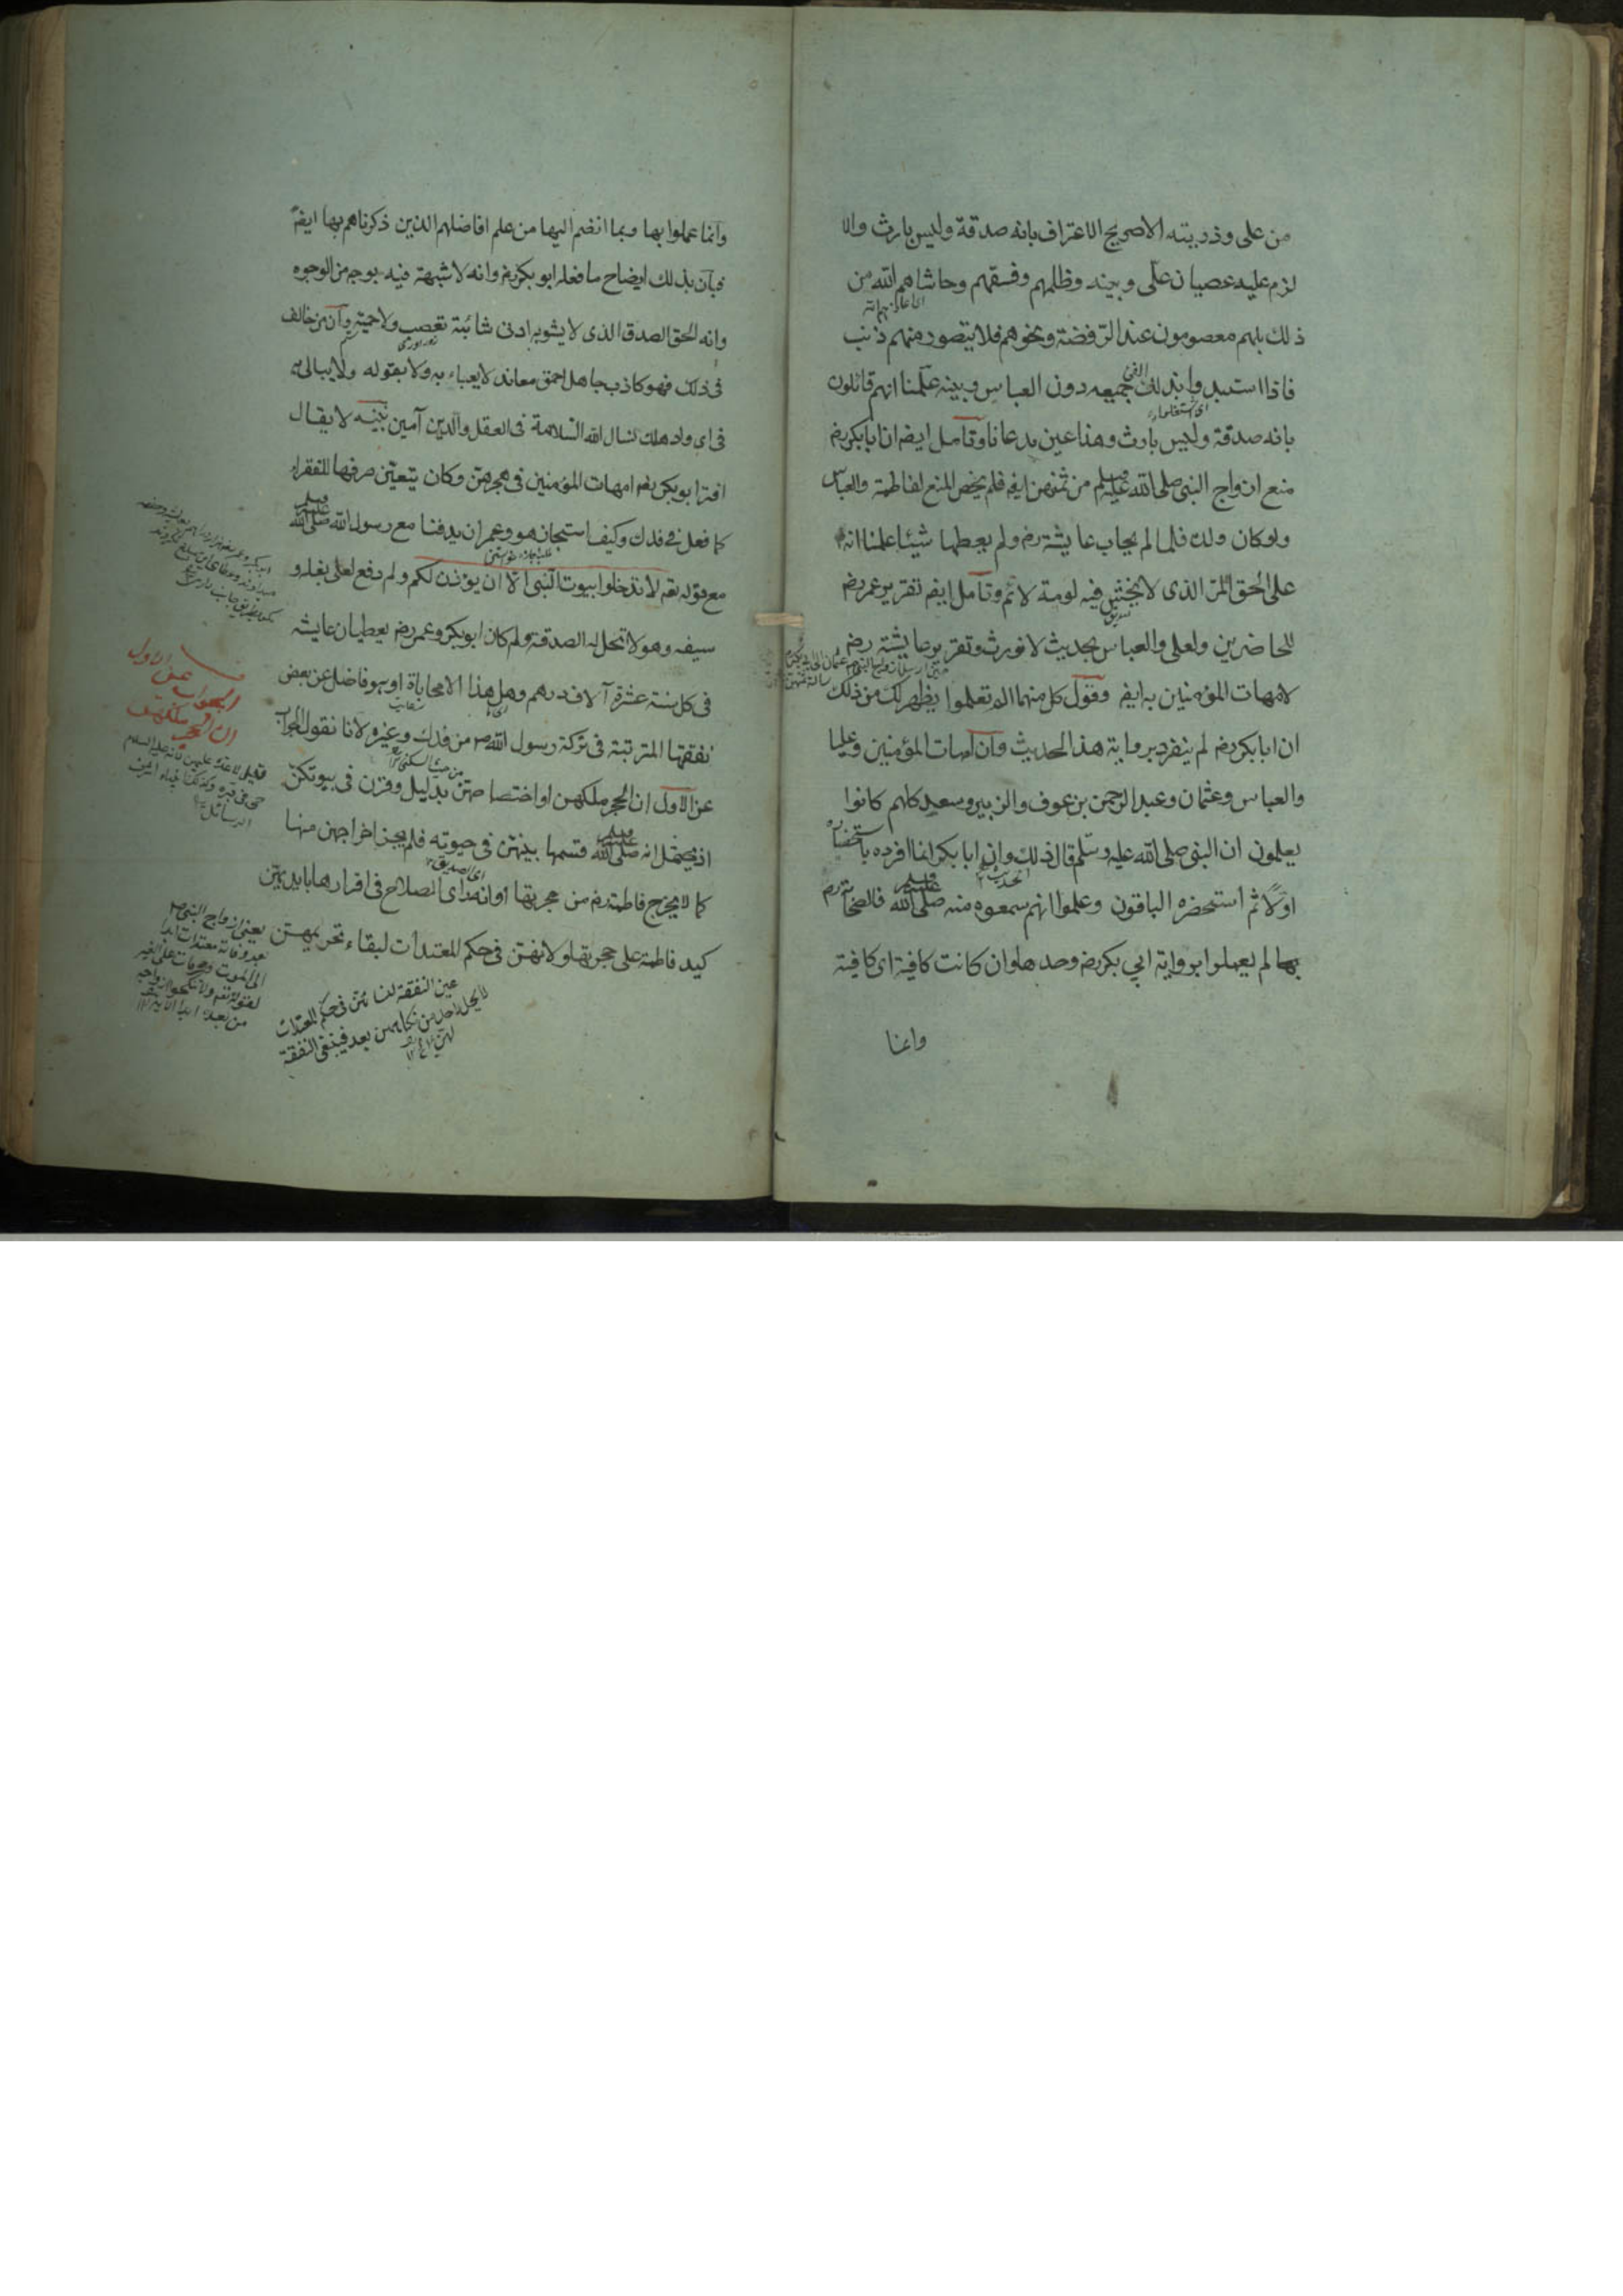 من على وذريته الا صريح الاعتراف بانه صدقة وليس بارث والا
لزم عليه عصيان علّى وبينه وظلمهم وفسقهم وحاشاهم الله من
ذلك بلهم معصومون عند الرفضة ونحوهم فلا يتصور منهم ذنب
فاذا استبدوا بذلك جميعه دون العباس وبينه علمنا انهم قائلون
بانه صدقة وليس بارث وهذا عين مدعانا وتامل ايضم ان ابابكر رضم
منع ازواج النبى صلى الله عليه وسلم من ثمنهن ايضم فلم يخص المنع لفاطمة والعباس
ولو كان ولك فلما لم يحاب عايشة رضم ولم يعطها شيئا علمنا انه
على الحق المرّ الذى لا يخشى فيه لومة لائم وتامل ايضم تقرير عمر رضم
للحاضرين ولعلى والعباس بحديث لا نورث وتقرير عايشة رضم
لامهات المؤمنين به ايضم وقول كل منهما الم تعلموا يظهر لك من ذلك
ان ابابكر رضم لم ينفرد برواية هذا الحديث وان امهات المؤمنين وعليا
والعباس وعثمان وعبد الرحمن بن عوف والزبير وسعيد كلهم كانوا
يعلمون ان النبى صلى الله عليه وسلم قال ذلك وان ابا بكر انما انفرد باستحضاره
اولًا ثم استحضره الباقون وعلموا انهم سمعوه منه صلى الله عليه وسلم فالصحابة رضم
بها لم يعملوا برواية ابي بكر رضم وحدها وان كانت كافية اى كافية
وانما
وانما عملوا بها وبما انضم اليها من علم افاضلهم الذين ذكرناهم بها ايضم
فبان بذلك ايضاح ما فعله ابو بكر رضم وانه لا شبهة فيه بوجه من الوجوه
وانه الحق الصدق الذى لا يشوبه ادنى شائبة تعصب ولا حمية وان من خالف
فى ذلك فهو كاذب جاهل احمق معاند لا يعباء به ولا بقوله ولا يبالى به
فى اى واد هلك نسال الله السلامة فى العقل والدين آمين تنبيه لا يقال
اقرّ ابو بكر رضم امهات المؤمنين فى حجرهن وكان يتعين صرفها للفقراء
كما فعل فى فدك وكيف استجاز هو وعمر ان يدفنا مع رسول الله صلى الله عليه وسلم
مع قوله تعم لا تدخلوا بيوت النبى الا ان يؤذن لكم ولم دفع لعلى بغله و
سيفه وهو لا تحل له الصدقة ولم كان ابو بكر وعمر رضم يعطيان عايشه
فى كل سنة عشرة آلاف درهم وهل هذا الا محاباة او هو فاضل عن بعض
نفقتها المترتبة فى تركة رسول الله ص من فدك وغيره لانا نقول الجواب
عن الاول ان الحجر ملكهن او اختصاصهن بدليل وقرن فى بيوتكن
اذ يحتمل انه صلى الله عليه وسلم قسمها بينهن فى حيوته فلم يجز اخراجهن منها
كما لا يخرج فاطمة رضم من حجرتها او انه راى الصلاح فى اقرارها بايديهن
كيد فاطمة على حجرتها ولانهن فى حكم المعتدات لبقاء تحريمهن
الجواب عن الاول
ان الحجر ملكهن
يعنى ازواج النبى ص
بعد وفاته معتدات ابدا
الى الموت ومحرمات على الغير
لقوله تعم ولا تنكحوا ازواجه
من بعده ابدا